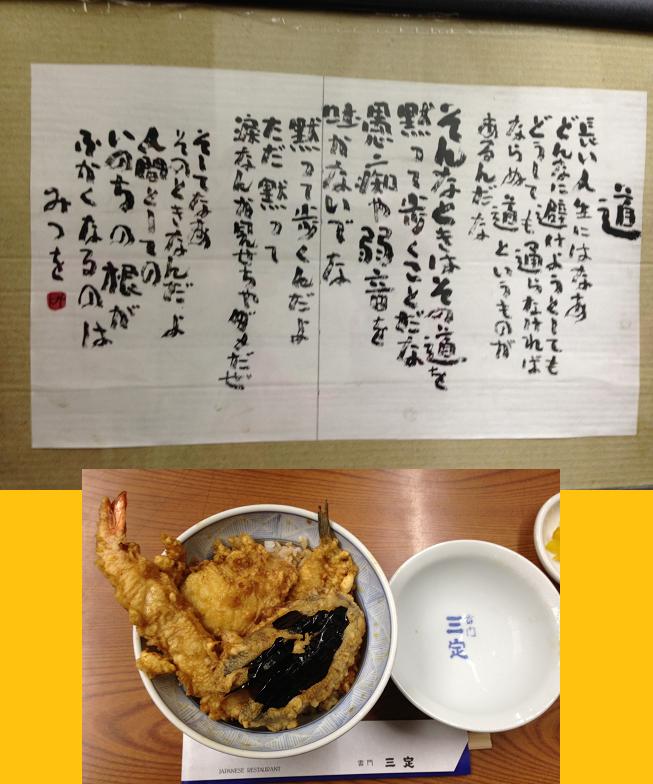 道
長い人生にはなあ
どんなに避けようとしても
どうしても通らなければ
ならぬ道というものが
あるんだな
そんなときはその道を
黙って歩くことだな
愚痴や弱音を
吐かないでな
黙って歩くんだよ
ただ黙って
涙なんか見せちゃダメだぜ
そしてなあ
そのときなんだよ
人間としての
いのちの根が
ふかくなるのは
みつを
雷門
三定
JAPANESE RESTAURANT
雷門 三定